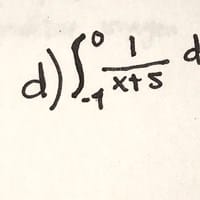 d) ∫_{-1}^{0} 1/(x+5) d